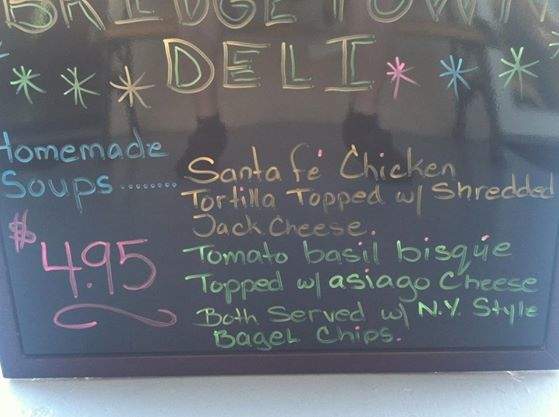 BRIDGETOWN
DELI
Homemade
Soups........
$4.95
Santa fé Chicken
Tortilla Topped w/ Shredded
Jack Cheese.
Tomato basil bisque
Topped w/ asiago Cheese
Both Served w/ N.Y. Style
Bagel Chips.